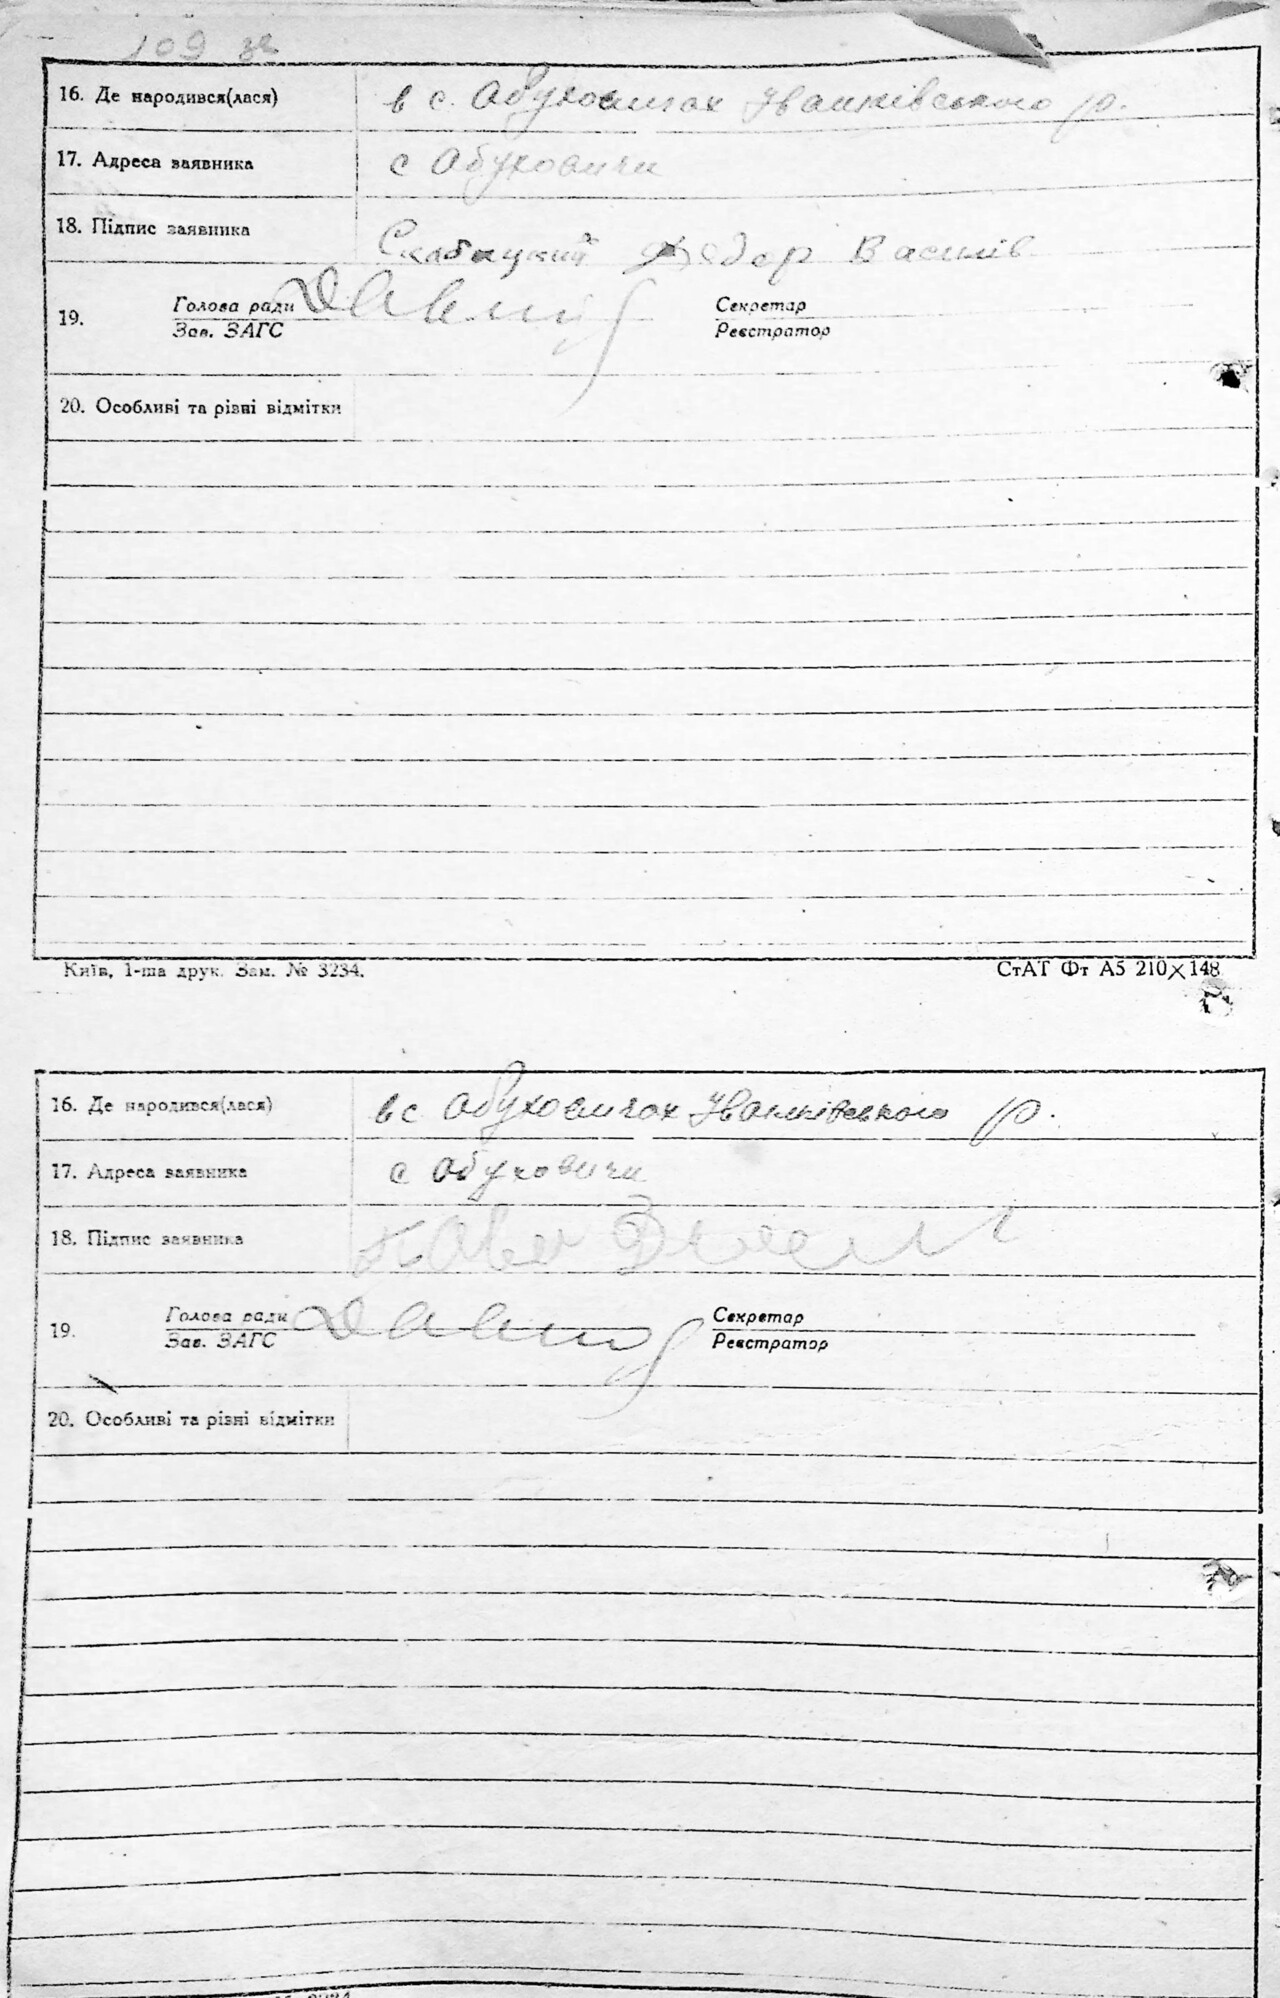 109 зв
16. Де народився(лася) в с. Обуховичах Іванківського р.
17. Адреса заявника с Обуховичи
18. Підпис заявника Скабицкий Федор Василів
19. Голова ради Секретар
Зав. ЗАГС Реєстратор
20. Особливі та різні відмітки
Київ, 1-ша друк. Зам. № 3234. СтАТ Фт А5 210×148
16. Де народився(лася) в с Обуховичах Іванківського р.
17. Адреса заявника с Обуховичи
18. Підпис заявника
19. Голова ради Секретар
Зав. ЗАГС Реєстратор
20. Особливі та різні відмітки